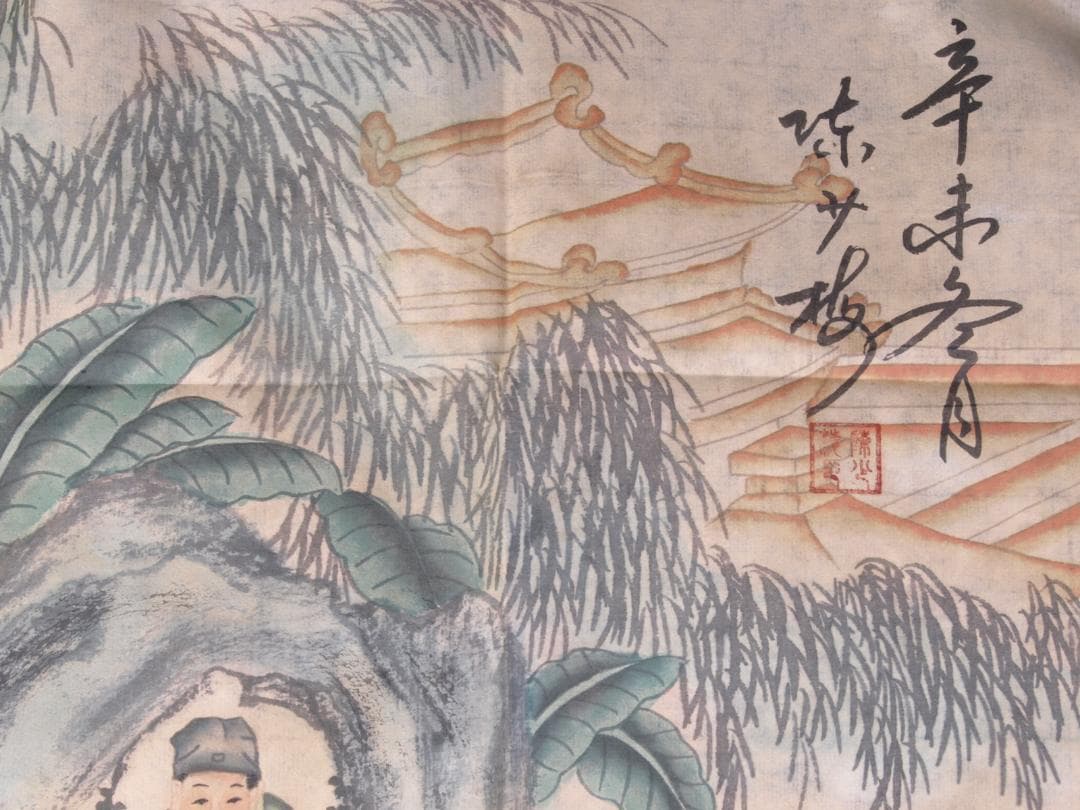 辛未冬月
陈少梅